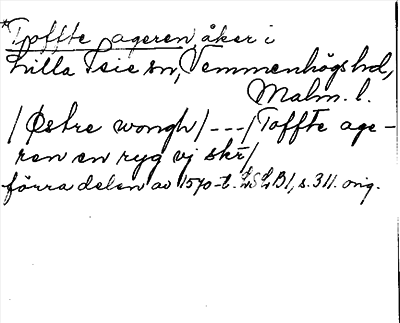 *Toffte ageren, åker i
Lilla Peie sn, Vemmenhögs hd,
Malm. l.
/Østre wongh/---/Toffte age-
ren en ryg vj skr/
förra delen av 1570-t. LSLB1, s. 311. orig.